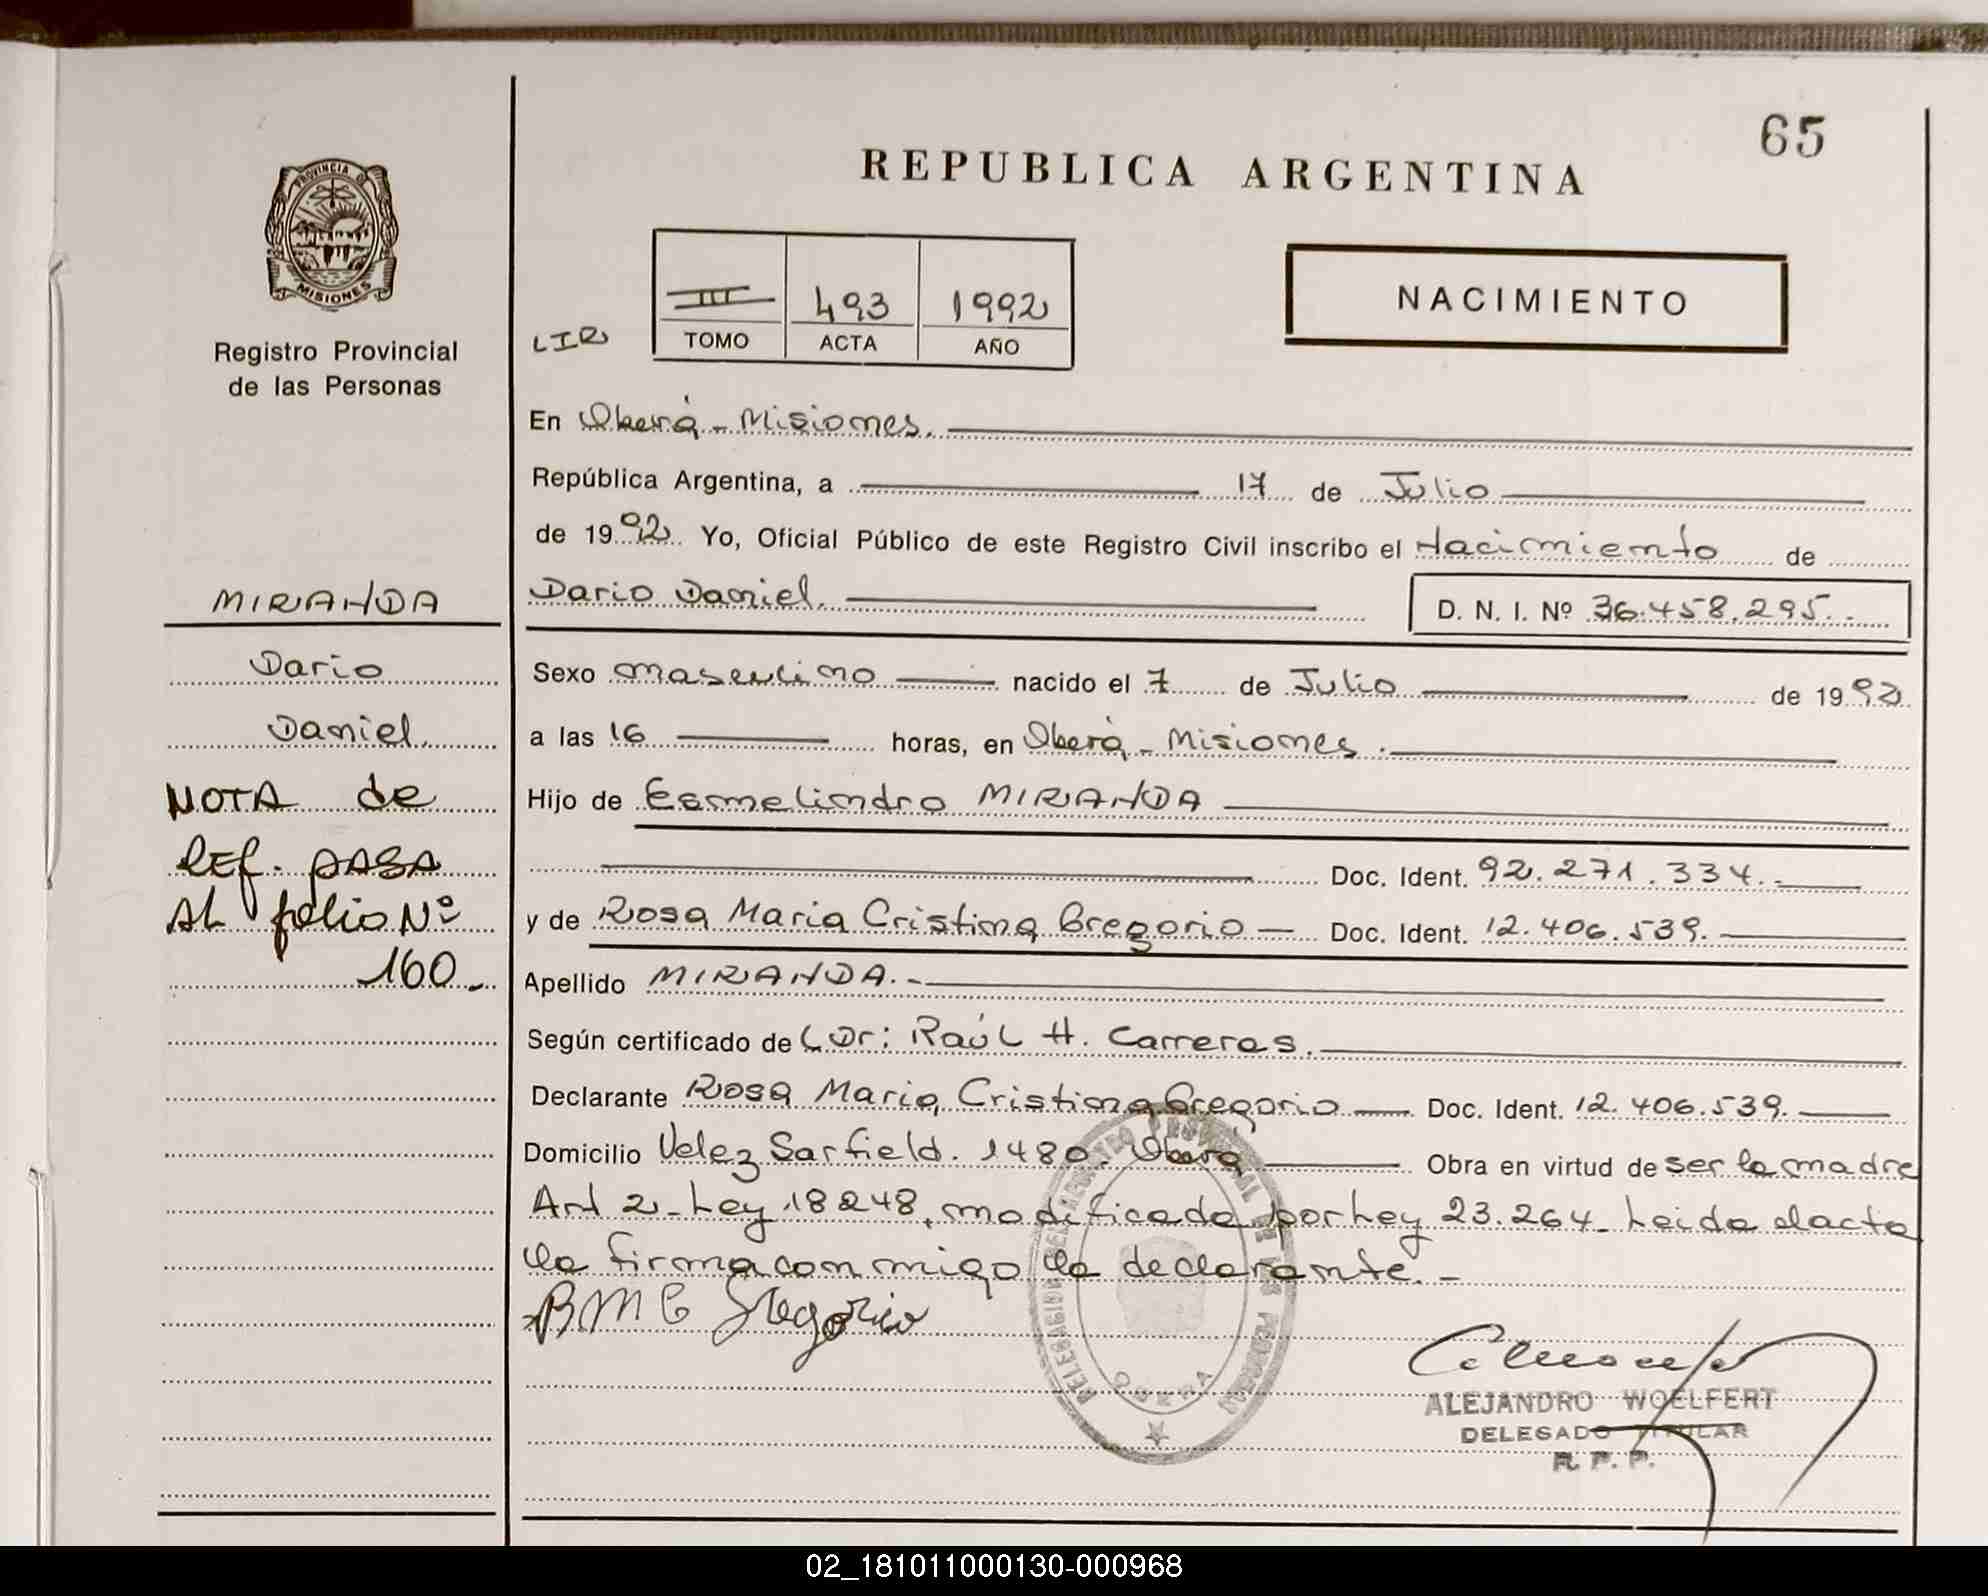 65
REPUBLICA ARGENTINA
PROVINCIA D
MISIONES
Registro Provincial
de las Personas
III 493 1992
TOMO ACTA AÑO
NACIMIENTO
En Oberá - Misiones.
República Argentina, a 17 de Julio
de 1992 Yo, Oficial Público de este Registro Civil inscribo el Nacimiento de
Dario Daniel. D. N. I. Nº 36.458.295.
MIRANDA
Dario
Daniel.
NOTA de
REF. PASA
AL folio Nº
160_
Sexo masculino nacido el 7 de Julio de 1992
a las 16 horas, en Oberá - Misiones.
Hijo de Esmelindro MIRANDA
Doc. Ident. 92.271.334.
y de Rosa Maria Cristina Gregorio — Doc. Ident. 12.406.539.
Apellido MIRANDA.-
Según certificado de L Dr: Raúl H. Carreras.
Declarante Rosa Maria Cristina Gregorio — Doc. Ident. 12.406.539.
Domicilio Velez Sarfield. 1480. Oberá Obra en virtud de ser la madre
Art 2 - Ley 18248, modificada por Ley 23.264. Leida el acta
la firma conmigo la declarante. -
RMC Gregorio
OBERA
ALEJANDRO WOELFERT
DELEGADO TITULAR
R. P. P.
02_181011000130-000968